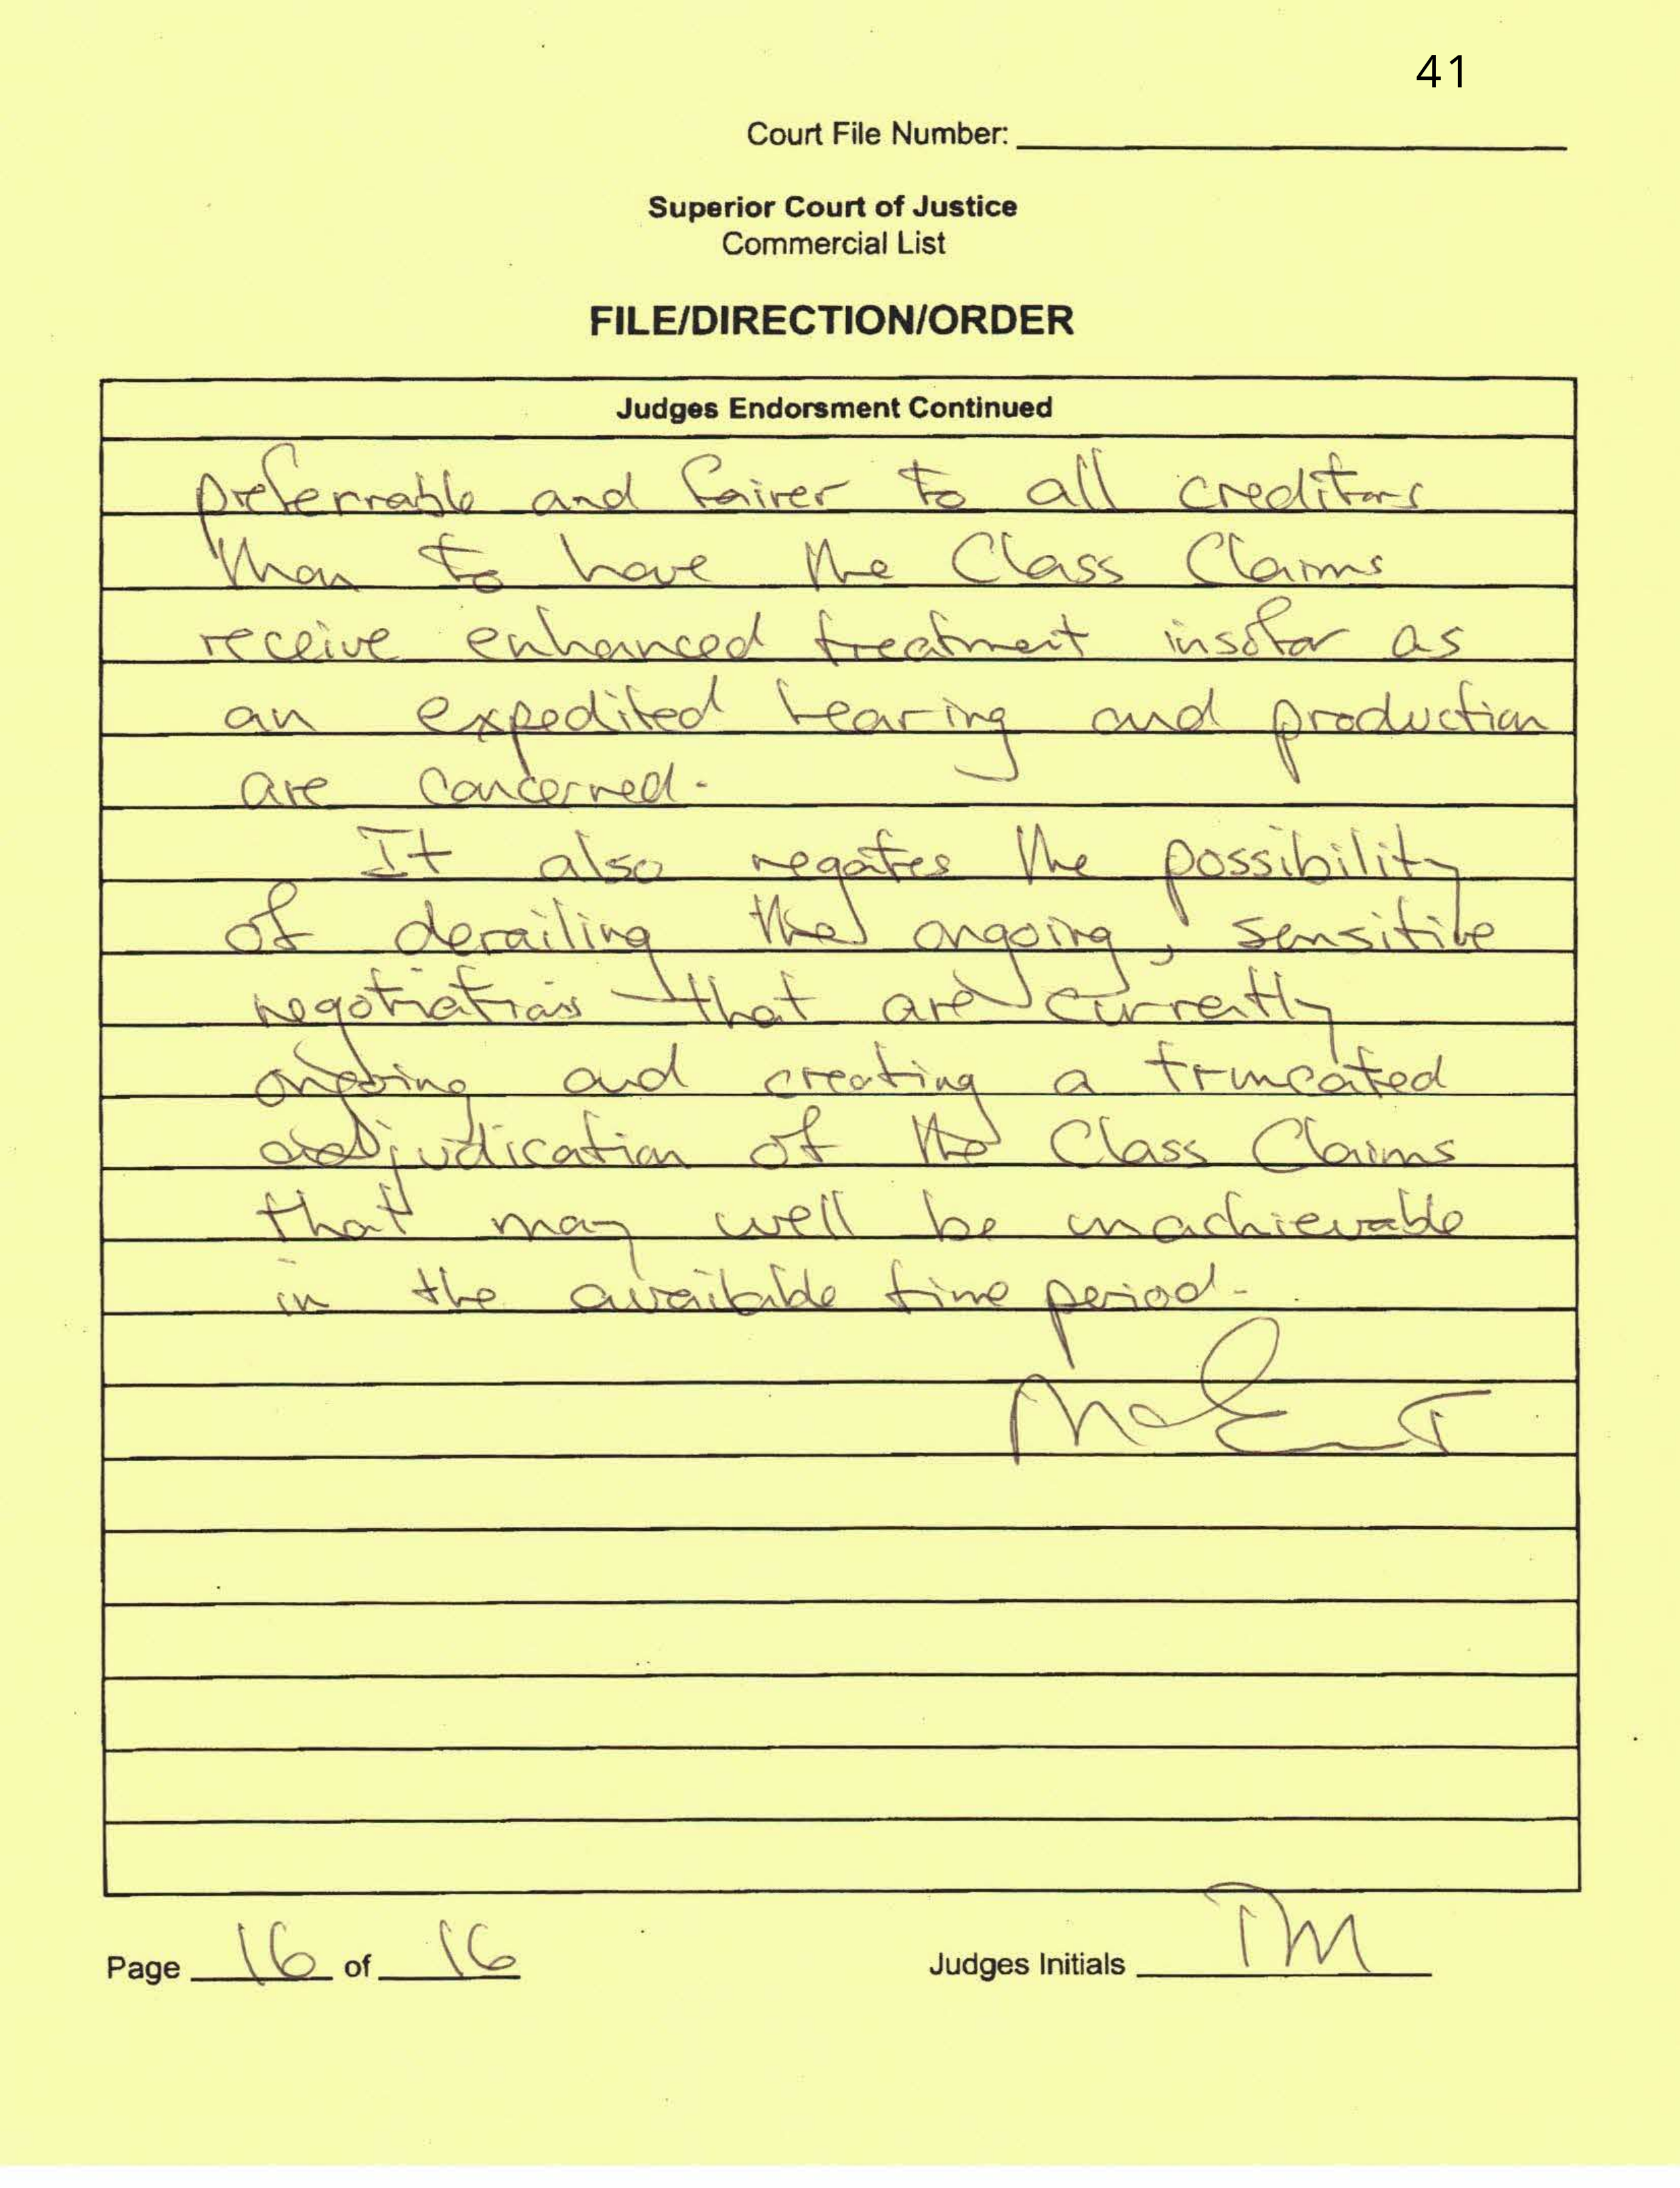 41
Court File Number:
Superior Court of Justice
Commercial List
FILE/DIRECTION/ORDER
Judges Endorsment Continued
preferrable and fairer to all creditors
than to have the Class Claims
receive enhanced treatment insofar as
an expedited hearing and production
are concerned.
It also negates the possibility
of derailing the ongoing, sensitive
negotiations that are currently
ongoing and creating a truncated
adjudication of the Class Claims
that may well be unachievable
in the available time period.
Page 16 of 16
Judges Initials TM